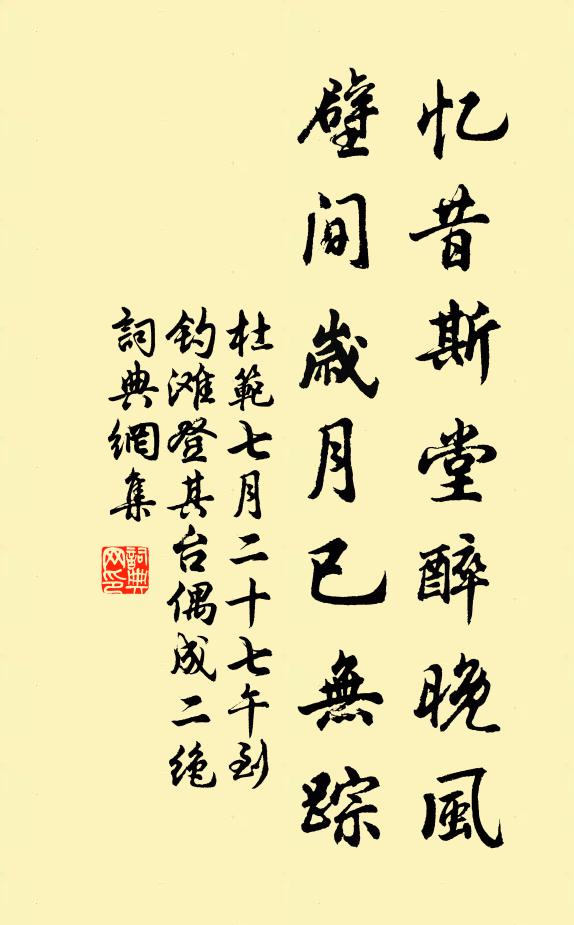 忆昔斯堂醉晚風
壁间歳月已無踪
杜範七月二十七午到
钓滩登其台偶成二绝
詞典網集
詞典网印